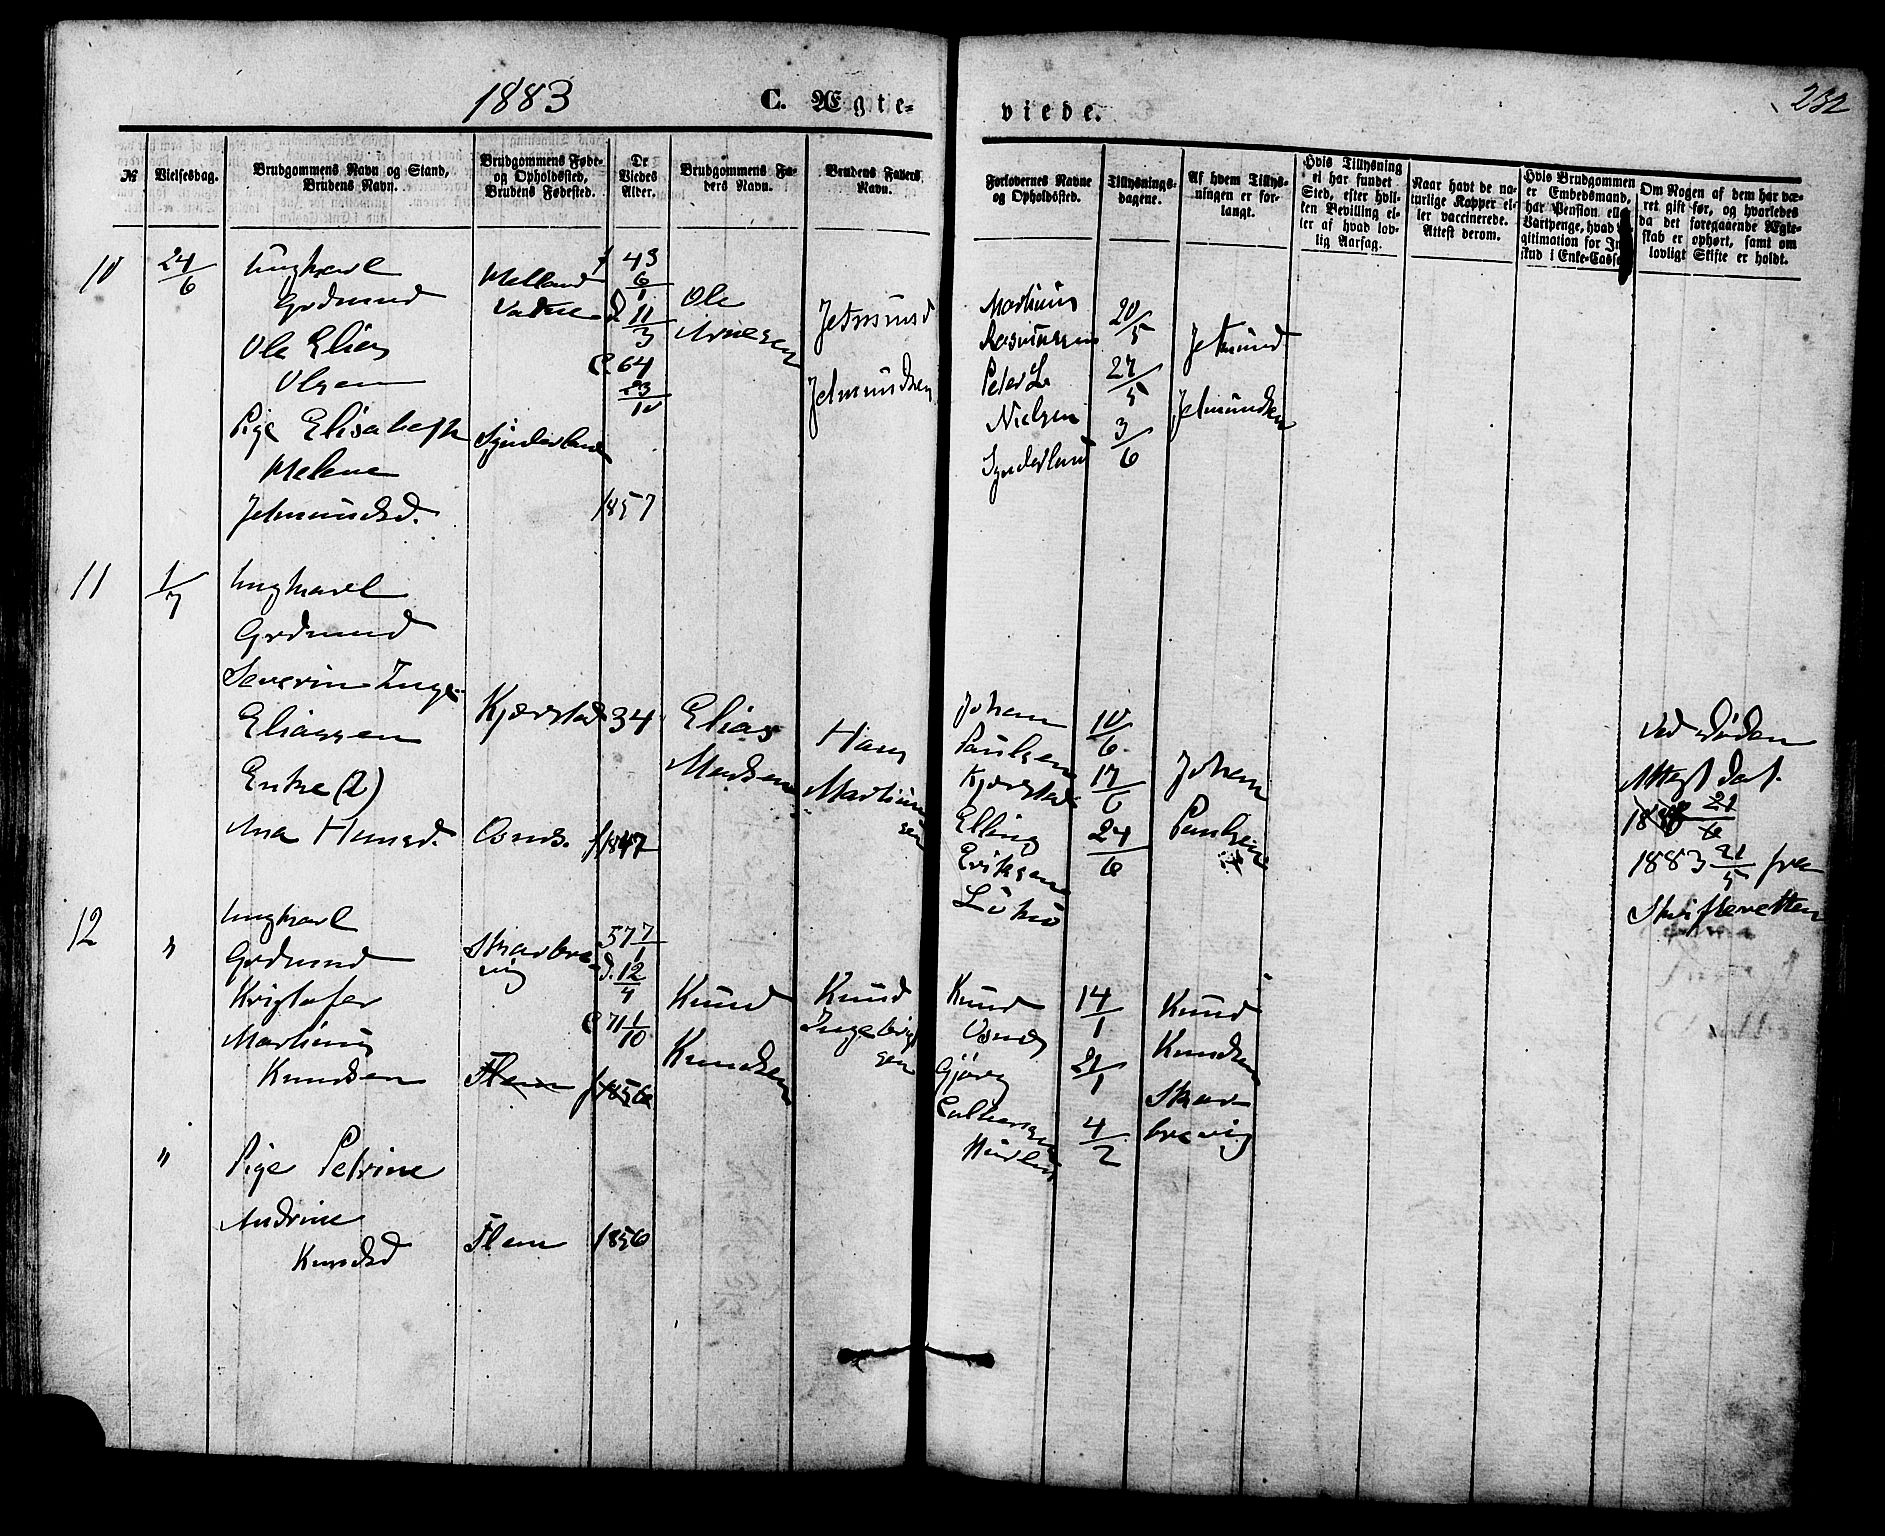 1883
C. Ægte-
viede.
232
№
Vielsesdag.
Brudgommens Navn og Stand,
Brudens Navn.
Brudgommens Føde-
og Opholdssted,
Brudens Fødested.
De
Viedes
Alder.
Brudgommens Fa-
ders Navn.
Brudens Faders
Navn.
Forlovernes Navne
og Opholdssted.
Tillysnings-
dagene.
Af hvem Tillys-
ningen er for-
langt.
Hvis Tillysning
ei har fundet
Sted, efter hvil-
ken Bevilling el-
ler af hvad lov-
lig Aarsag.
Naar havt de na-
turlige Kopper el-
ler vaccinerede.
Attest derom.
Hvis Brudgommen
er Embedsmand,
har Pension ell.
Vartpenge, hvad
gitimation for In
skud i Enke-Casse
Om Nogen af dem har væ-
ret gift før, og hvorledes
da det foregaaende Ægte-
skab er ophørt, samt om
lovligt Skifte er holdt.
10
24/6
Ungkarl
Grdmand
Ole Elias
Olsen
Pige Elisabeth
Melene
Jetmundsd.
Melland
Vatne
Synderland
f 43
6/1
d. 11/3
C. 64
23/10
1857
Ole
Arnesen
Jetmund
Jetmundsen
Martinus
Rasmussen
Peter L.
Nielsen
Synderland
20/5
27/5
3/6
Jetmund
Jetmundsen
11
1/7
Ungkarl
Grdmand
Severin Inge
Eliassen
Enke (2)
Ana Hansd.
Kjærstad
Osnes.
34
f 1847
Elias
Madsen
Hans
Martinus
sen
Johan
Paulsen
Kjærstad
Elling
Eriksen
10/6
17/6
24/6
Johan
Paulsen
Ved Døden
Attest dat.
21/6
1883 21/5 fra
Skifteretten
12
"
Ungkarl
Grdmand
Kristofer
Martinus
Knudsen
"
Pige Petrine
Andrine
Knudsd
Skarbre-
vig
Flem
Flem
57 7/1
d. 12/4
C 71 1/10
f 1856
1856
Knud
Knudsen
Knud
Ingebrigt
sen
Knud
Osnes
Gjørg
14/1
21/1
4/2
Knud
Knudsen
Skar-
brevig